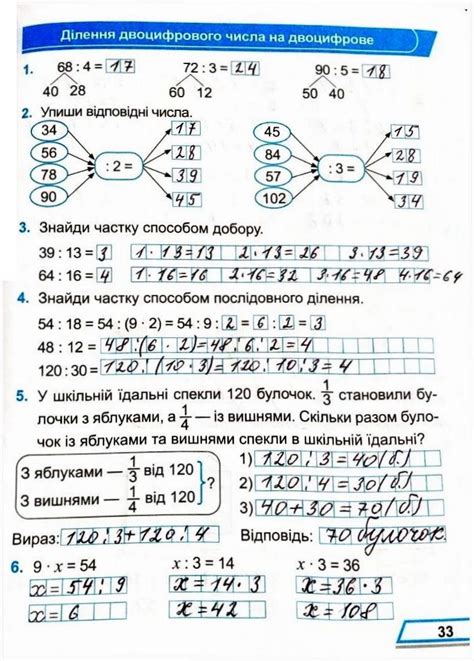 Ділення двоцифрового числа на двоцифрове
1. 68 : 4 = 17 72 : 3 = 24 90 : 5 = 18
40 28 60 12 50 40
2. Упиши відповідні числа.
34 17 45 15
56 28 84 28
: 2 = : 3 =
78 39 57 19
90 45 102 34
3. Знайди частку способом добору.
39 : 13 = 3 1 · 13 = 13 2 · 13 = 26 3 · 13 = 39
64 : 16 = 4 1 · 16 = 16 2 · 16 = 32 3 · 16 = 48 4 · 16 = 64
4. Знайди частку способом послідовного ділення.
54 : 18 = 54 : (9 · 2) = 54 : 9 : 2 = 6 : 2 = 3
48 : 12 = 48 : (6 · 2) = 48 : 6 : 2 = 4
120 : 30 = 120 : (10 · 3) = 120 : 10 : 3 = 4
5. У шкільній їдальні спекли 120 булочок. 1/3 становили бу-
лочки з яблуками, а 1/4 — із вишнями. Скільки разом було-
чок із яблуками та вишнями спекли в шкільній їдальні?
З яблуками — 1/3 від 120
З вишнями — 1/4 від 120
?
1) 120 : 3 = 40 (б)
2) 120 : 4 = 30 (б.)
3) 40 + 30 = 70 (б.)
Вираз: 120 : 3 + 120 : 4 Відповідь: 70 булочок
6. 9 · x = 54 x : 3 = 14 x · 3 = 36
x = 54 : 9 x = 14 · 3 x = 36 · 3
x = 6 x = 42 x = 108
33